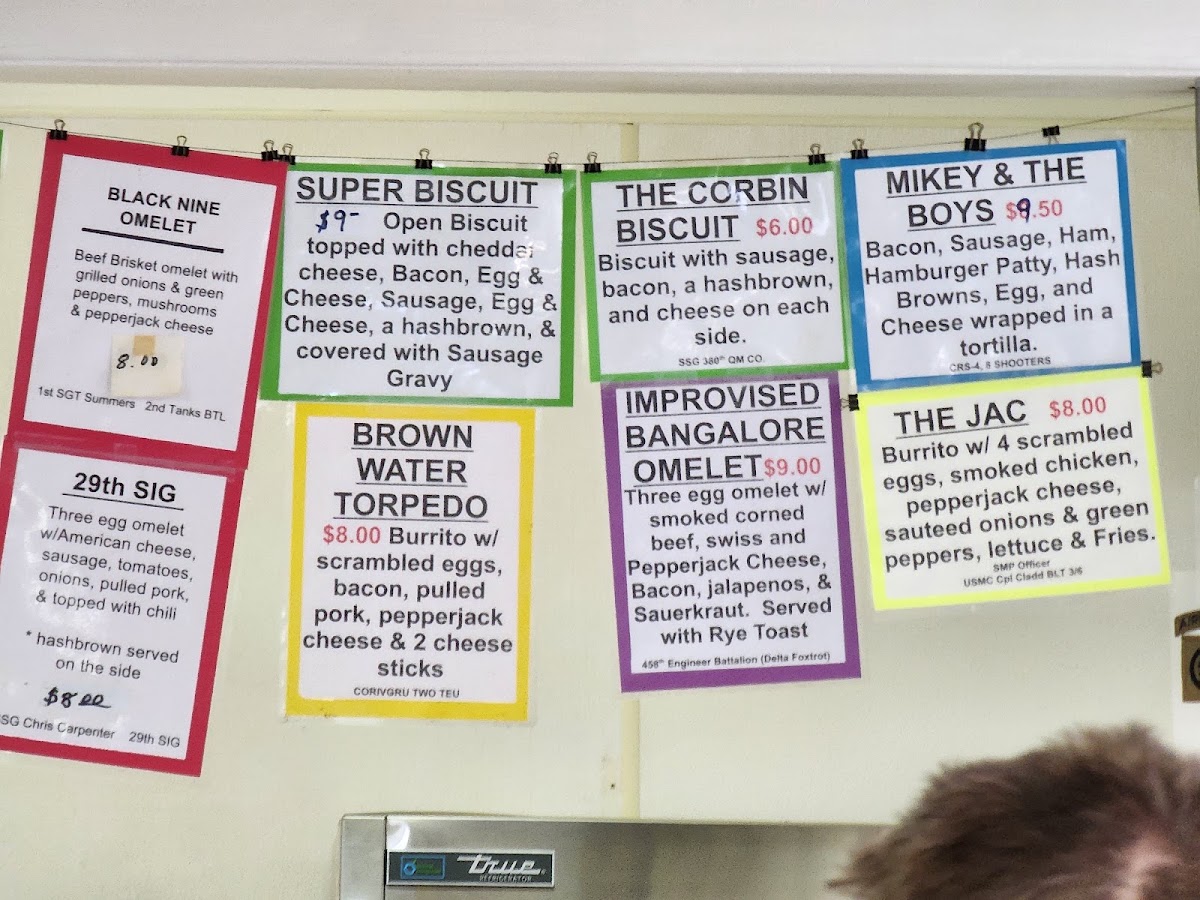 BLACK NINE
OMELET
Beef Brisket omelet with
grilled onions & green
peppers, mushrooms
& pepperjack cheese
8.00
1st SGT Summers 2nd Tanks BTL
29th SIG
Three egg omelet
w/American cheese,
sausage, tomatoes,
onions, pulled pork,
& topped with chili
* hashbrown served
on the side
$8.00
SSG Chris Carpenter 29th SIG
SUPER BISCUIT
$9- Open Biscuit
topped with cheddar
cheese, Bacon, Egg &
Cheese, Sausage, Egg &
Cheese, a hashbrown, &
covered with Sausage
Gravy
BROWN
WATER
TORPEDO
$8.00 Burrito w/
scrambled eggs,
bacon, pulled
pork, pepperjack
cheese & 2 cheese
sticks
CORIVGRU TWO TEU
THE CORBIN
BISCUIT $6.00
Biscuit with sausage,
bacon, a hashbrown,
and cheese on each
side.
SSG 380th QM CO.
IMPROVISED
BANGALORE
OMELET $9.00
Three egg omelet w/
smoked corned
beef, swiss and
Pepperjack Cheese,
Bacon, jalapenos, &
Sauerkraut. Served
with Rye Toast
458th Engineer Battalion (Delta Foxtrot)
MIKEY & THE
BOYS $9.50
Bacon, Sausage, Ham,
Hamburger Patty, Hash
Browns, Egg, and
Cheese wrapped in a
tortilla.
CRS-4, 8 SHOOTERS
THE JAC $8.00
Burrito w/ 4 scrambled
eggs, smoked chicken,
pepperjack cheese,
sauteed onions & green
peppers, lettuce & Fries.
SMP Officer
USMC Cpl Cladd BLT 3/6
true
REFRIGERATOR